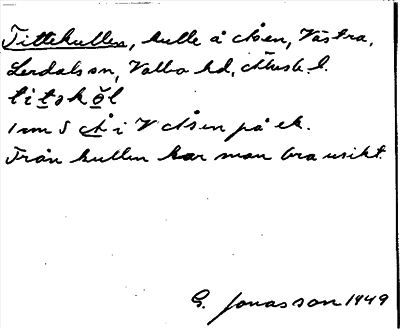 Tittekullen, kulle å Åsen, Västra,
Lerdals sn, Valbo hd, Älvsb. l.
titskŏl
1 mm S Å i V Åsen på ek.
Från kullen har man bra utsikt.
G. Jonasson 1949